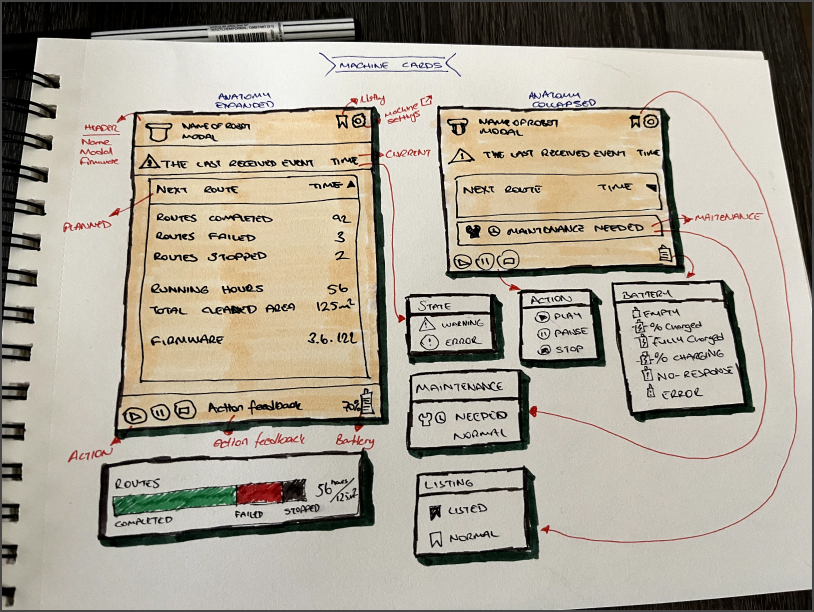 MACHINE CARDS
ANATOMY
EXPANDED
Listing
Machine
settings
HEADER
Name
Modal
Firmware
NAME OF ROBOT
MODAL
THE LAST RECEIVED EVENT TIME
CURRENT
NEXT ROUTE TIME
PLANNED
ROUTES COMPLETED 92
ROUTES FAILED 3
ROUTES STOPPED 2
RUNNING HOURS 56
TOTAL CLEANED AREA 125m²
FIRMWARE
Action feedback 70%
ACTION
Action feedback
Battery
ROUTES
56 hours/125m²
COMPLETED FAILED STOPPED
ANATOMY
COLLAPSED
NAME OF ROBOT
MODAL
THE LAST RECEIVED EVENT TIME
NEXT ROUTE TIME
MAINTENANCE NEEDED
MAITENANCE
STATE
WARNING
ERROR
ACTION
PLAY
PAUSE
STOP
BATTERY
EMPTY
% Charged
fully Charged
% CHARGING
NO-RESPONSE
ERROR
MAINTENANCE
NEEDED
NORMAL
LISTING
LISTED
NORMAL